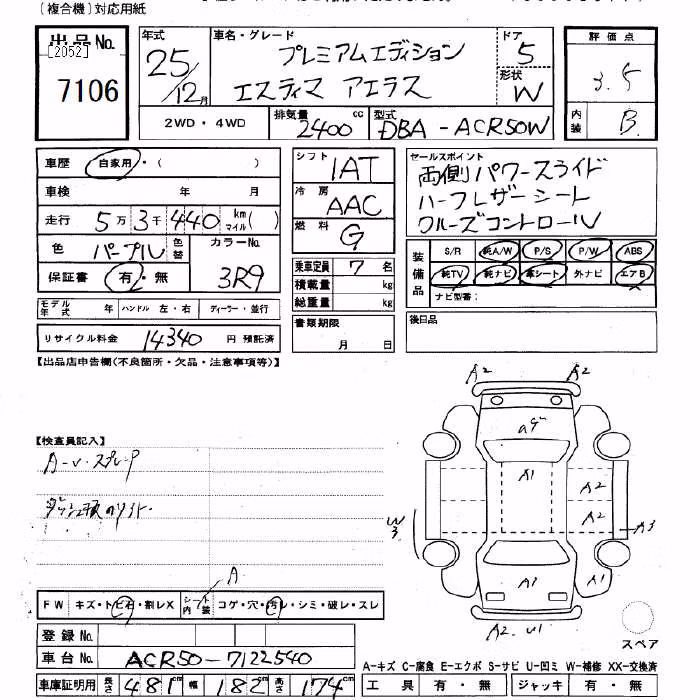 (複合機)対応用紙
出品No.
[2052]
7106
年式
25/12月
車名・グレード
プレミアムエディション
エスティマ アエラス
ドア
5
形状
W
評価点
3.5
内装
B
2WD・4WD
排気量
2400cc
型式
DBA-ACR50W
車歴 自家用・( )
車検 年 月
走行 5万3千440km マイル( )
色 パープル 色替
カラーNo.
3R9
保証書 有・無
モデル年式 年 ハンドル 左・右 ディーラー・並行
リサイクル料金 14340 円 預託済
シフト
IAT
冷房
AAC
燃料
G
乗車定員 7 名
積載量 kg
総重量 kg
書類期限
月 日
セールスポイント
両側パワースライド
ハーフレザーシート
クルーズコントロール
装備品
S/R 純A/W P/S P/W ABS
純TV 純ナビ 革シート 外ナビ エアB
ナビ型番:
後日品
【出品店申告欄(不良箇所・欠品・注意事項等)】
【検査員記入】
A2 A2
A1
A2
A2
W3
A3
A1
A2 U1
A
FW キズ・トビ石・割レX シート内装 コゲ・穴・汚レ・シミ・破レ・スレ
登録No.
車台No. ACR50-7122540
車庫証明用 長さ 481cm 幅 182cm 高さ 174cm
スペア
A-キズ C-腐食 E-エクボ S-サビ U-凹ミ W-補修 XX-交換済
工具 有・無 ジャッキ 有・無